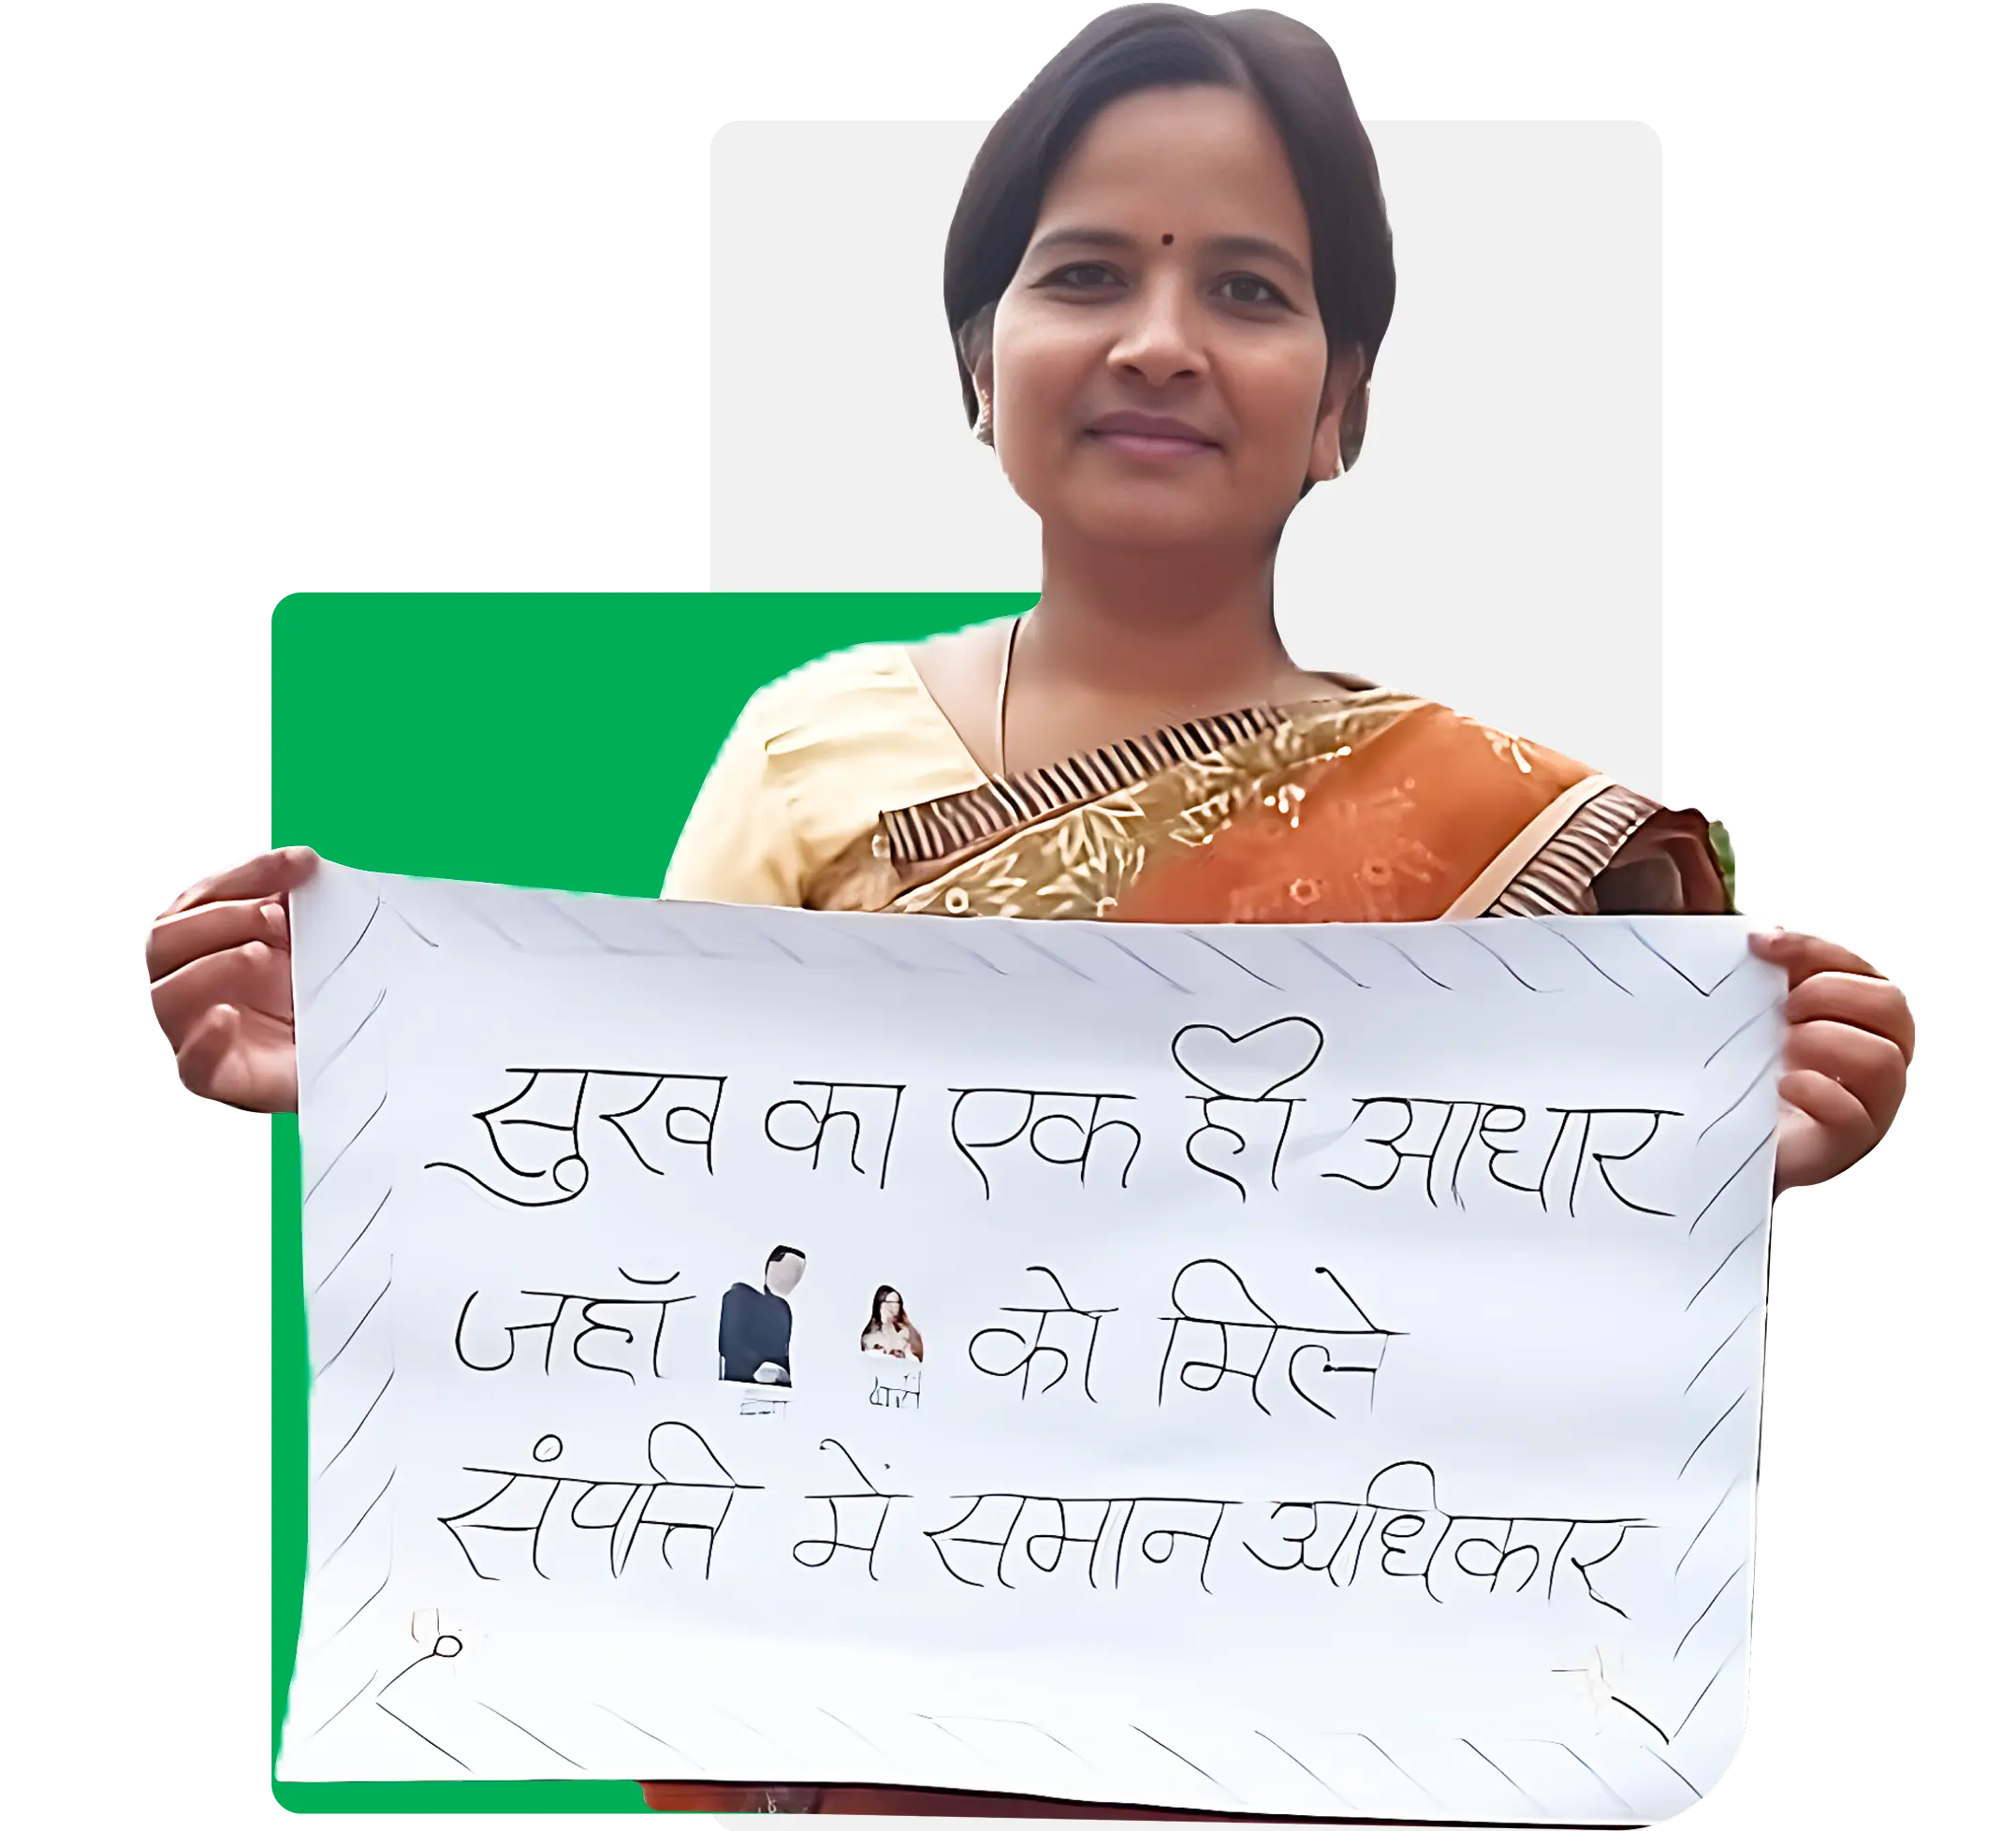 सुख का एक ही आधार
जहाँ को मिले
संपत्ति में समान अधिकार